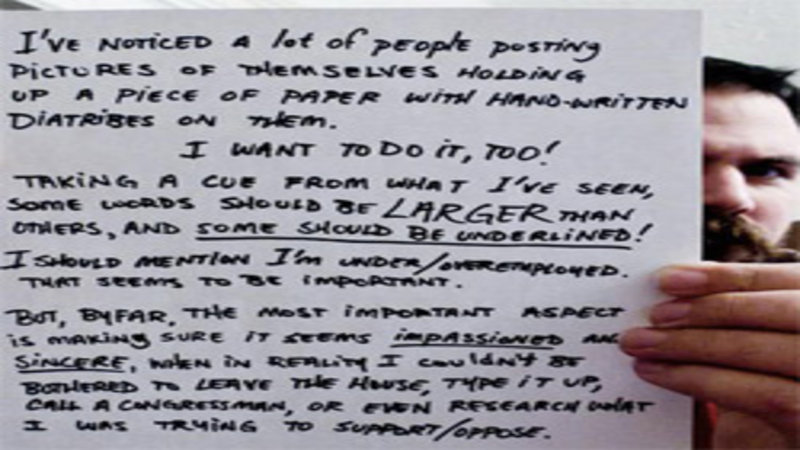 I'VE NOTICED A lot of people posting
PICTURES OF THEMSELVES HOLDING
UP A PIECE OF PAPER WITH HAND-WRITTEN
DIATRIBES ON THEM.
I WANT TO DO IT, TOO!
TAKING A CUE FROM WHAT I'VE SEEN,
SOME WORDS SHOULD BE LARGER THAN
OTHERS, AND SOME SHOULD BE UNDERLINED!
I SHOULD MENTION I'M UNDER/OVEREMPLOYED.
THAT SEEMS TO BE IMPORTANT.
BUT, BY FAR, THE MOST IMPORTANT ASPECT
IS MAKING SURE IT SEEMS IMPASSIONED AND
SINCERE, WHEN IN REALITY I COULDN'T BE
BOTHERED TO LEAVE THE HOUSE, TYPE IT UP,
CALL A CONGRESSMAN, OR EVEN RESEARCH WHAT
I WAS TRYING TO SUPPORT/OPPOSE.